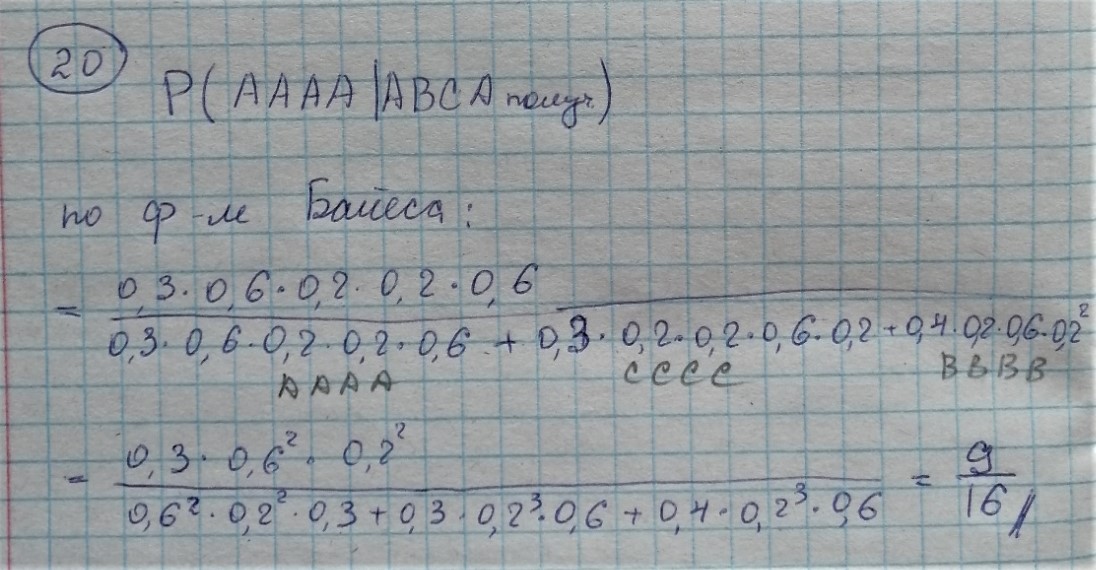 20
P(AAAA|ABCA получ)
по ф-ле Байеса:
= 0,3·0,6·0,2·0,2·0,6
0,3·0,6·0,2·0,2·0,6 + 0,3·0,2·0,2·0,6·0,2 + 0,4·0,2·0,6·0,2²
AAAA CCCC BBBB
= 0,3·0,6²·0,2²
0,6²·0,2²·0,3 + 0,3·0,2³·0,6 + 0,4·0,2³·0,6
= 9
16